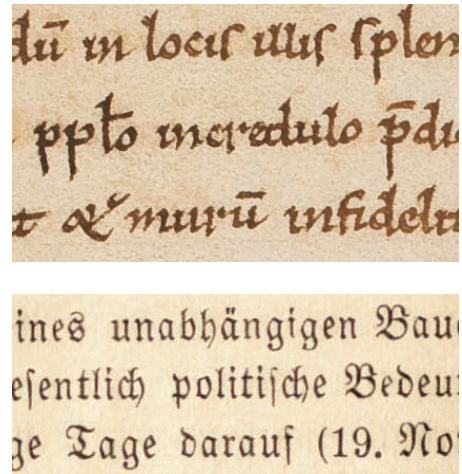 dū in lociſ illiſ ſplen
ppło incredulo p̄di
t & murū infidelit
ines unabhängigen Baue
eſentlich politiſche Bedeu
ge Tage darauf (19. Nov